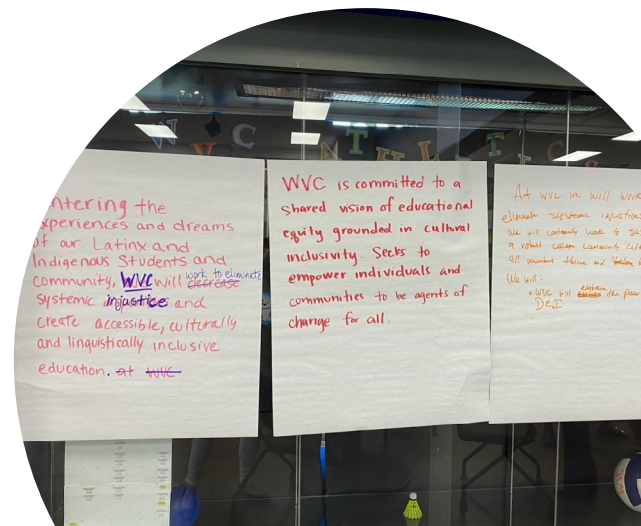 ntering the
xperiences and dreams
of our Latinx and
Indigenous Students and
community, WVC will work to eliminate decrease
systemic injustice and
create accessible, culturally
and linguistically inclusive
education. at WVC
WVC is committed to a
shared vision of educational
equity grounded in cultural
inclusivity. Seeks to
empower individuals and
communities to be agents of
change for all.
At WVC we will work
eliminate systemic injustice
We will
a robust campus community
all members thrive and
We will:
• WVC will the
D&I
WVC ATHLETICS